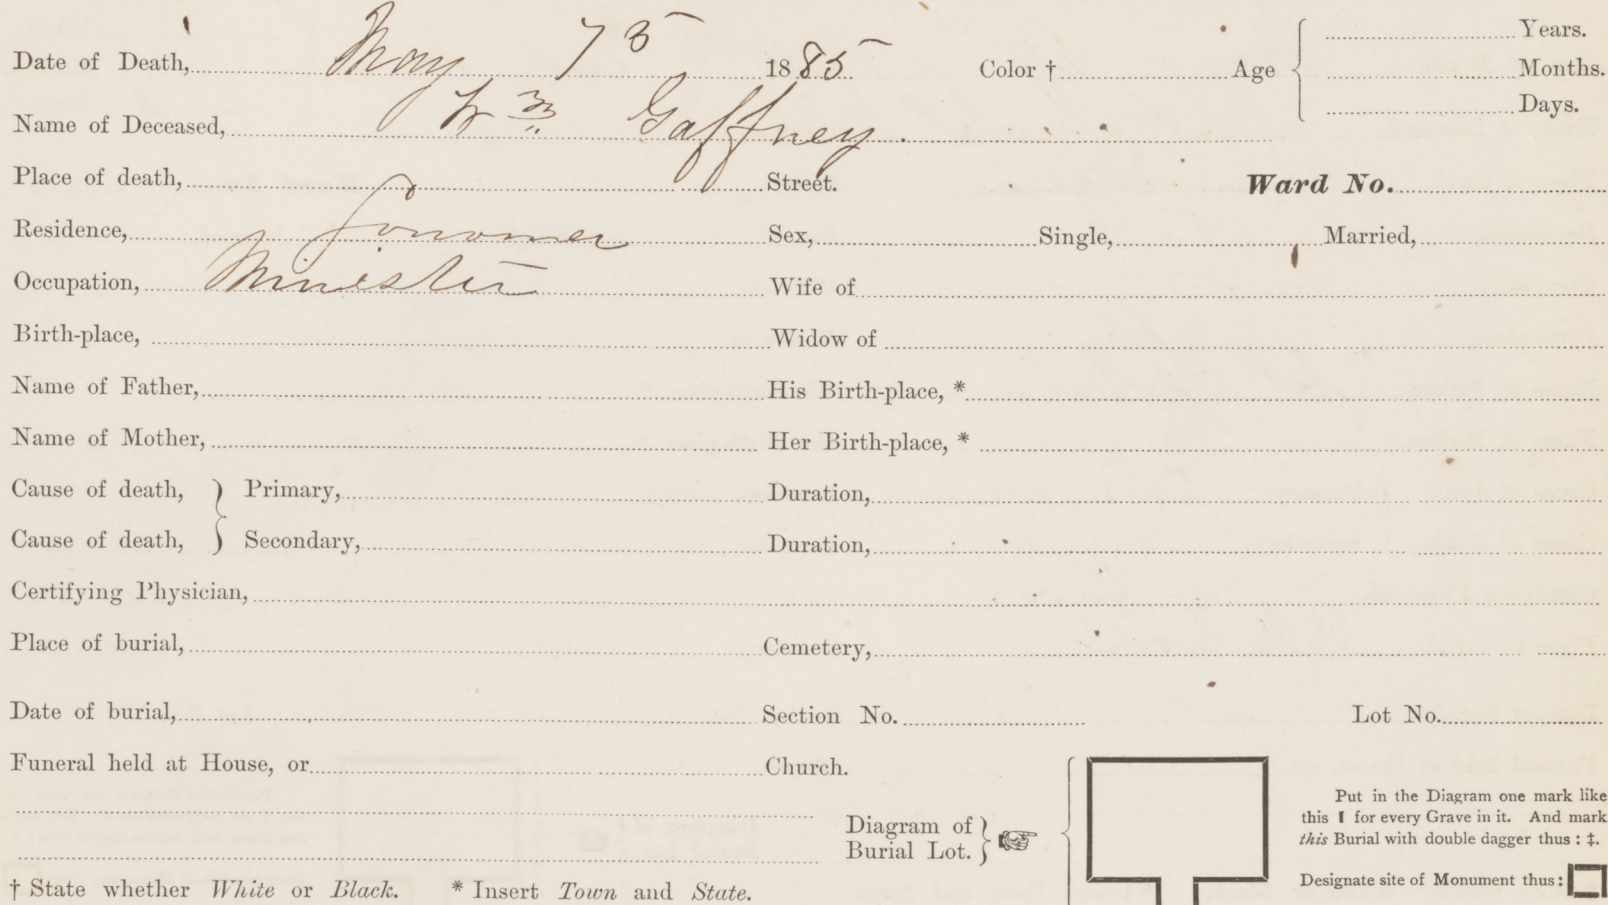 Date of Death, May 7 5 1885 Color † Age Years.
Months.
Days.
Name of Deceased, Wm Gaffney.
Place of death, Street. Ward No.
Residence, Sonoma Sex, Single, Married,
Occupation, Minister Wife of
Birth-place, Widow of
Name of Father, His Birth-place, *
Name of Mother, Her Birth-place, *
Cause of death, } Primary, Duration,
Cause of death, } Secondary, Duration,
Certifying Physician,
Place of burial, Cemetery,
Date of burial, Section No. Lot No.
Funeral held at House, or Church.
Diagram of
Burial Lot.
Put in the Diagram one mark like
this I for every Grave in it. And mark
this Burial with double dagger thus : ‡.
Designate site of Monument thus :
† State whether White or Black. * Insert Town and State.